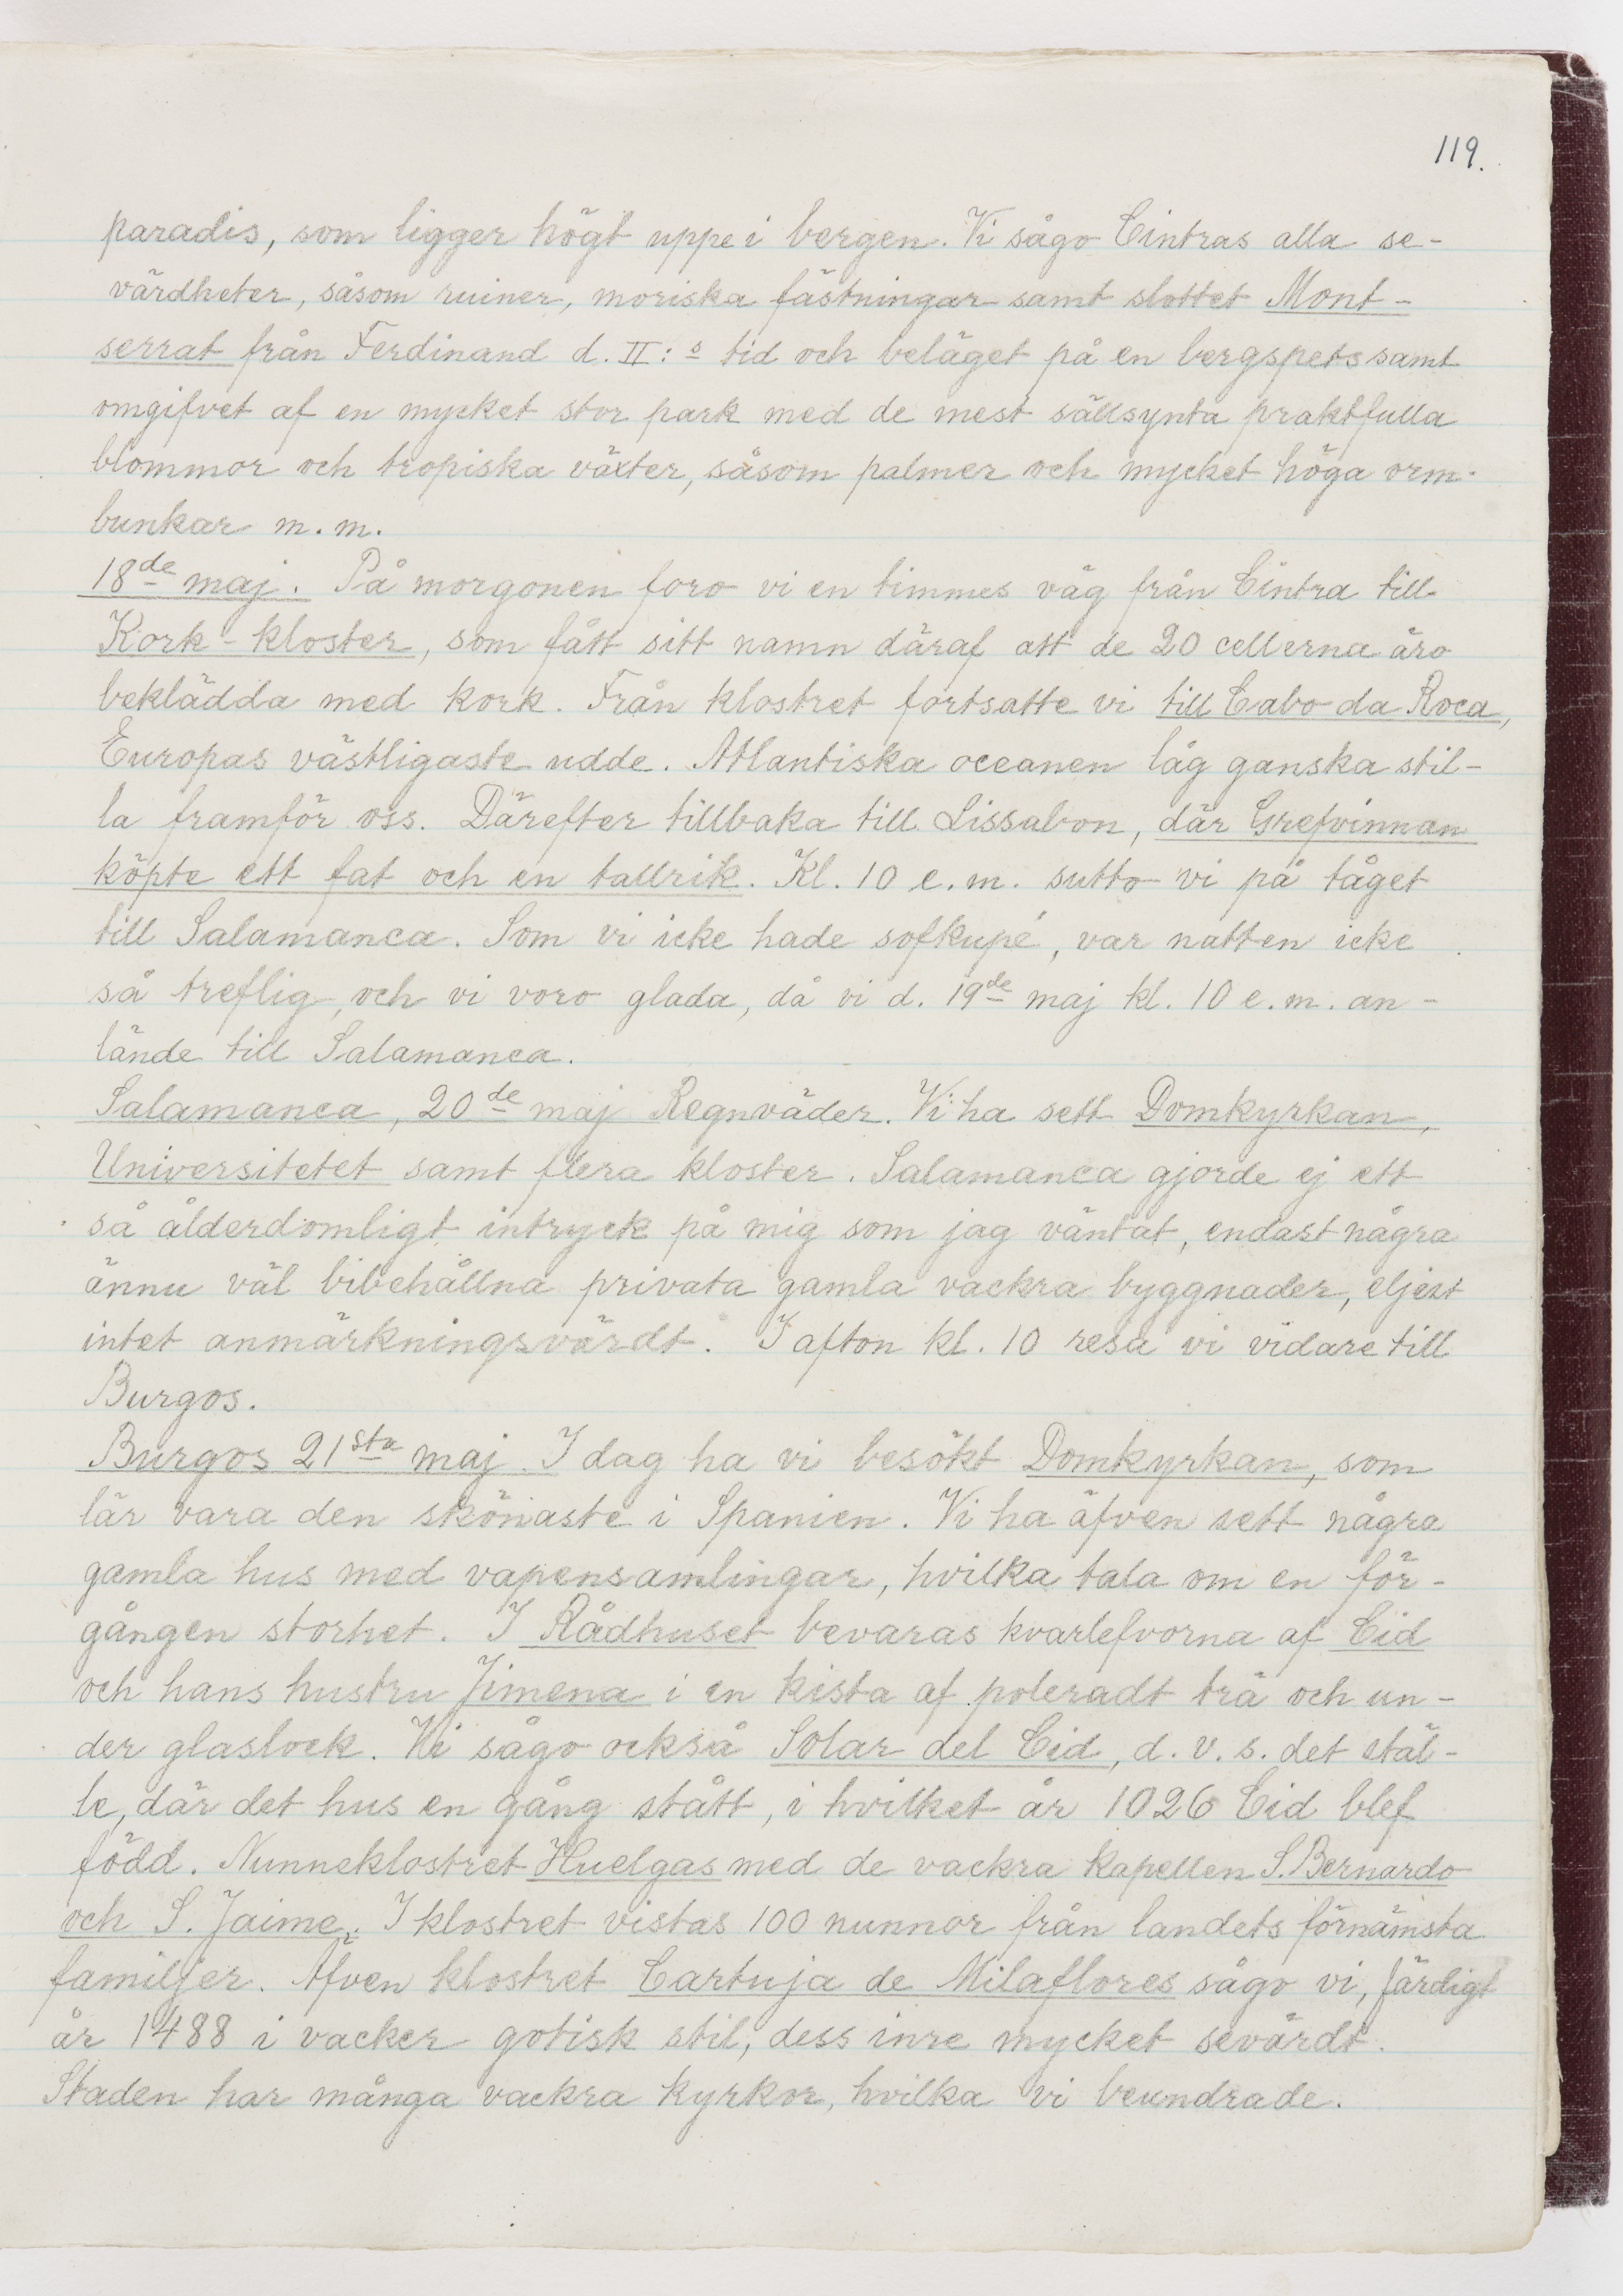 119.
paradis, som ligger högt uppe i bergen. Vi sågo Cintras alla se-
värdheter, såsom ruiner, moriska fästningar samt slottet Mont-
serrat från Ferdinand d. II:s tid och beläget på en bergspets samt
omgifvet af en mycket stor park med de mest sällsynta praktfulla
blommor och tropiska växter, såsom palmer och mycket höga orm-
bunkar m.m.
18de maj. På morgonen foro vi en timmes väg från Cintra till
Kork-kloster, som fått sitt namn däraf att de 20 cellerna äro
beklädda med kork. Från klostret fortsatte vi till Cabo da Roca,
Europas västligaste udde. Atlantiska oceanen låg ganska stil-
la framför oss. Därefter tillbaka till Lissabon, där Grefvinnan
köpte ett fat och en tallrik. Kl. 10 e.m. sutto vi på tåget
till Salamanca. Som vi icke hade sofkupé, var natten icke
så treflig, och vi voro glada, då vi d. 19de maj kl. 10 e.m. an-
lände till Salamanca.
Salamanca, 20de maj Regnväder. Vi ha sett Domkyrkan,
Universitetet samt flera kloster. Salamanca gjorde ej ett
så ålderdomligt intryck på mig som jag väntat, endast några
ännu väl bibehållna privata gamla vackra byggnader, eljest
intet anmärkningsvärdt. I afton kl. 10 resa vi vidare till
Burgos.
Burgos 21sta maj. I dag ha vi besökt Domkyrkan, som
lär vara den skönaste i Spanien. Vi ha äfven sett några
gamla hus med vapensamlingar, hvilka tala om en för-
gången storhet. I Rådhuset bevaras kvarlefvorna af Cid
och hans hustru Jimena i en kista af poleradt trä och un-
der glaslock. Vi sågo också Solar del Cid, d.v.s. det stäl-
le, där det hus en gång stått, i hvilket år 1026 Cid blef
född. Nunneklostret Huelgas med de vackra kapellen S. Bernardo
och S. Jaime. I klostret vistas 100 nunnor från landets förnämsta
familjer. Äfven klostret Cartuja de Milaflores sågo vi, färdigt
år 1488 i vacker gotisk stil, dess inre mycket sevärdt.
Staden har många vackra kyrkor, hvilka vi beundrade.